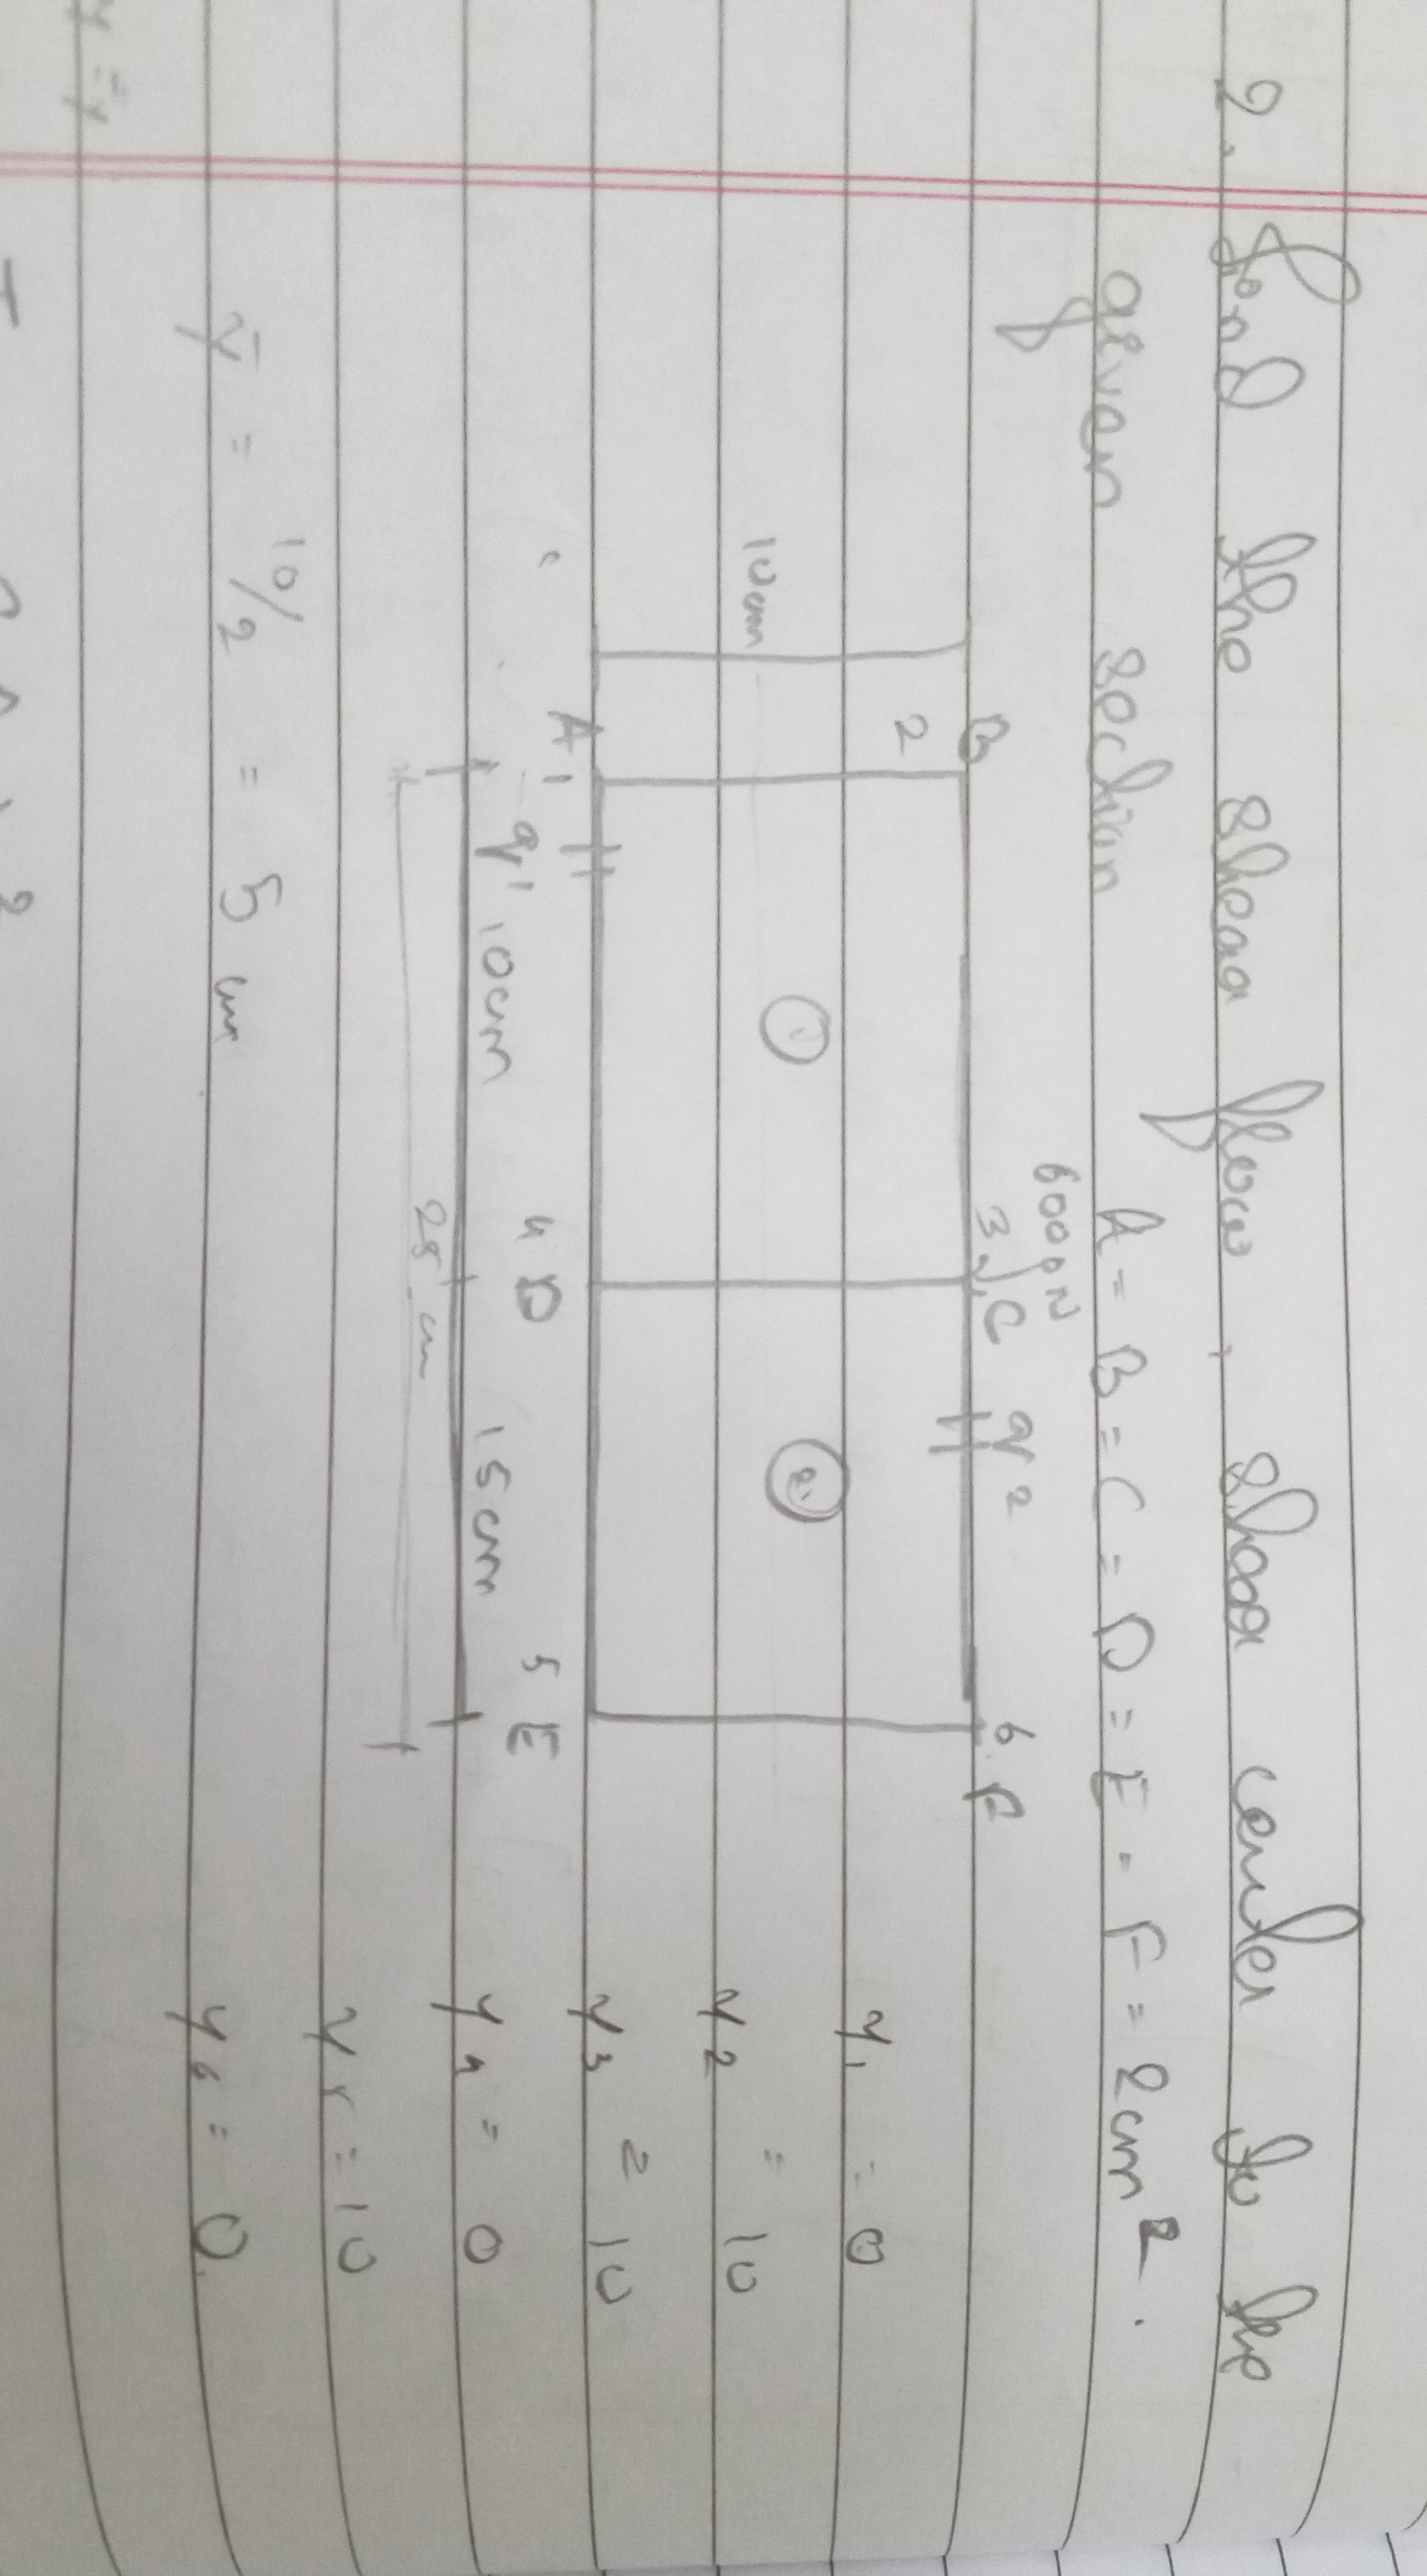 2. Find the shear flow, shear center to the
given section A = B = C = D = E = F = 2cm².
6000N
B 3 C q2 6 F
2
y1 = 0
10cm ① ②
y2 = 10
y3 = 10
A 1 4 D 5 E
q1 10cm 15cm
y4 = 0
25 cm
y5 = 10
ȳ = 10/2 = 5 cm
y6 = 0